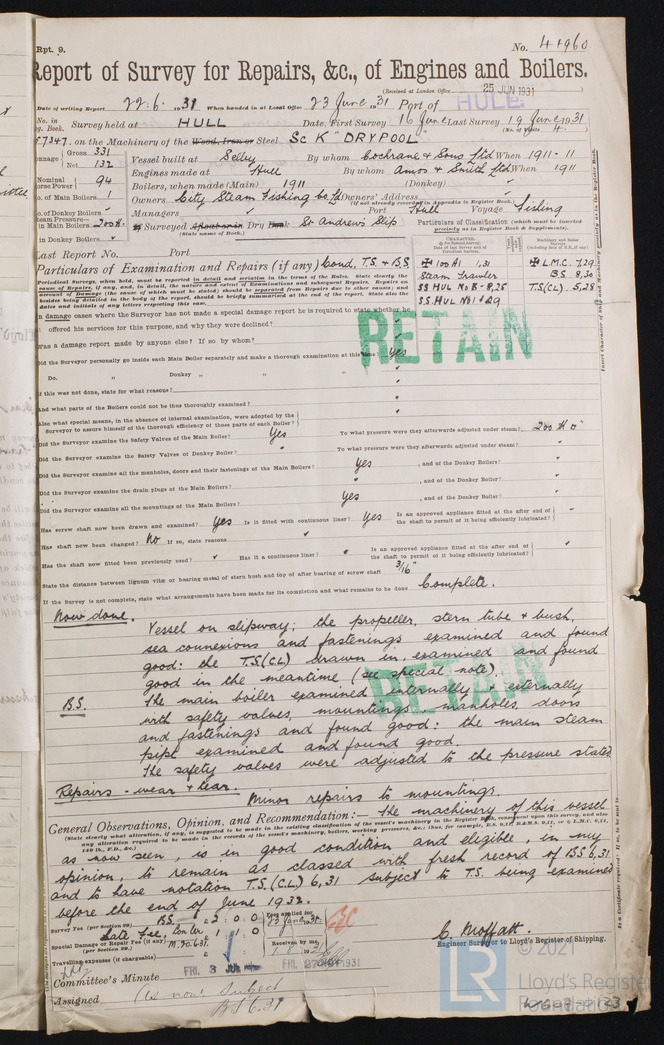 Rpt. 9.
No. 41960
Report of Survey for Repairs, &c., of Engines and Boilers.
(Received at London Office 25 JUN 1931)
Date of writing Report 22.6. 1931 When handed in at Local Office 23 June 1931 Port of HULL
No. in Reg. Book. Survey held at HULL Date, First Survey 16 June Last Survey 19 June 1931
(No. of Visits 4.)
57347. on the Machinery of the Wood, Iron or Steel Sc K "DRYPOOL"
Tonnage Gross 331 Net 132
Vessel built at Selby By whom Cochrane & Sons Ltd When 1911-11
Engines made at Hull By whom Amos & Smith Ltd When 1911
Nominal Horse Power 94
Boilers, when made (Main) 1911 (Donkey)
No. of Main Boilers 1
Owners City Steam Fishing Co Ltd Owners' Address
(if not already recorded in Appendix to Register Book.)
No. of Donkey Boilers
Managers Port Hull Voyage Fishing
Steam Pressure in Main Boilers 200 lb
If Surveyed Afloat or in Dry Dock St Andrews Slip
(State name of Dock.)
in Donkey Boilers
Particulars of Classification (which must be inserted precisely as in Register Book & Supplements).
Last Report No. Port
Particulars of Examination and Repairs (if any) Cond, T.S. & B.S
+ 100 A1 1,31
Steam Trawler
SS HUL No B - 8,25
SS. HUL No 1 29
+ L.M.C. 7,29
B.S. 8,30
T.S.(CL). 5,28
RETAIN
In damage cases where the Surveyor has not made a special damage report he is required to state whether he
offered his services for this purpose, and why they were declined?
Was a damage report made by anyone else? If so by whom?
Did the Surveyor personally go inside each Main Boiler separately and make a thorough examination at this time? Yes
Do. " Donkey " " "
If this was not done, state for what reasons?
And what parts of the Boilers could not be thoroughly examined?
Also what special means, in the absence of internal examination, were adopted by the
Surveyor to assure himself of the thorough efficiency of those parts of each Boiler?
Did the Surveyor examine the Safety Valves of the Main Boiler? Yes To what pressure were they afterwards adjusted under steam? 200 lb
Did the Surveyor examine the Safety Valves of Donkey Boiler? To what pressure were they afterwards adjusted under steam?
Did the Surveyor examine all the manholes, doors and their fastenings of the Main Boilers? Yes , and of the Donkey Boilers?
Did the Surveyor examine the drain plugs of the Main Boilers? , and of the Donkey Boilers?
Did the Surveyor examine all the mountings of the Main Boilers? Yes , and of the Donkey Boilers?
Has screw shaft now been drawn and examined? Yes Is it fitted with continuous liner? Yes Is an approved appliance fitted at the after end of the shaft to permit of it being efficiently lubricated?
Has shaft now been changed? No If so, state reasons
Has the shaft now fitted been previously used? Has it a continuous liner? Is an approved appliance fitted at the after end of the shaft to permit of it being efficiently lubricated?
State the distance between lignum vitæ or bearing metal of stern bush and top of after bearing of screw shaft 3/16"
If the Survey is not complete, state what arrangements have been made for its completion and what remains to be done Complete.
Now done. Vessel on slipway; the propeller, stern tube & bush,
sea connexions and fastenings examined and found
good: the T.S.(C.L) drawn in, examined and found
good in the meantime (see special note).
RETAIN
B.S. The main boiler examined internally & externally
with safety valves, mountings, manholes, doors
and fastenings and found good: the main steam
pipe examined and found good.
The safety valves were adjusted to the pressure stated
Repairs - wear & tear. Minor repairs to mountings.
General Observations, Opinion, and Recommendation:— The machinery of this vessel
as now seen, is in good condition and eligible, in my
opinion, to remain as classed with fresh record of BS 6,31
and to have notation T.S.(C.L) 6,31 subject to T.S. being examined
before the end of June 1932.
Survey Fee (per Section 29) BS £ 2:0:0
Fees applied for, 23 June 1931
Late Fee,
Special Damage or Repair Fee (if any) (per Section 29.) £ 1:1:0
Received by me,
Travelling expenses (if chargeable)
C. Moffatt.
Engineer Surveyor to Lloyd's Register of Shipping.
Committee's Minute FRI. 3 JUL FRI. 27 NOV 1931
Assigned As now Subject
BS 6.31
© 2021
LR
Lloyd's Register
Foundation